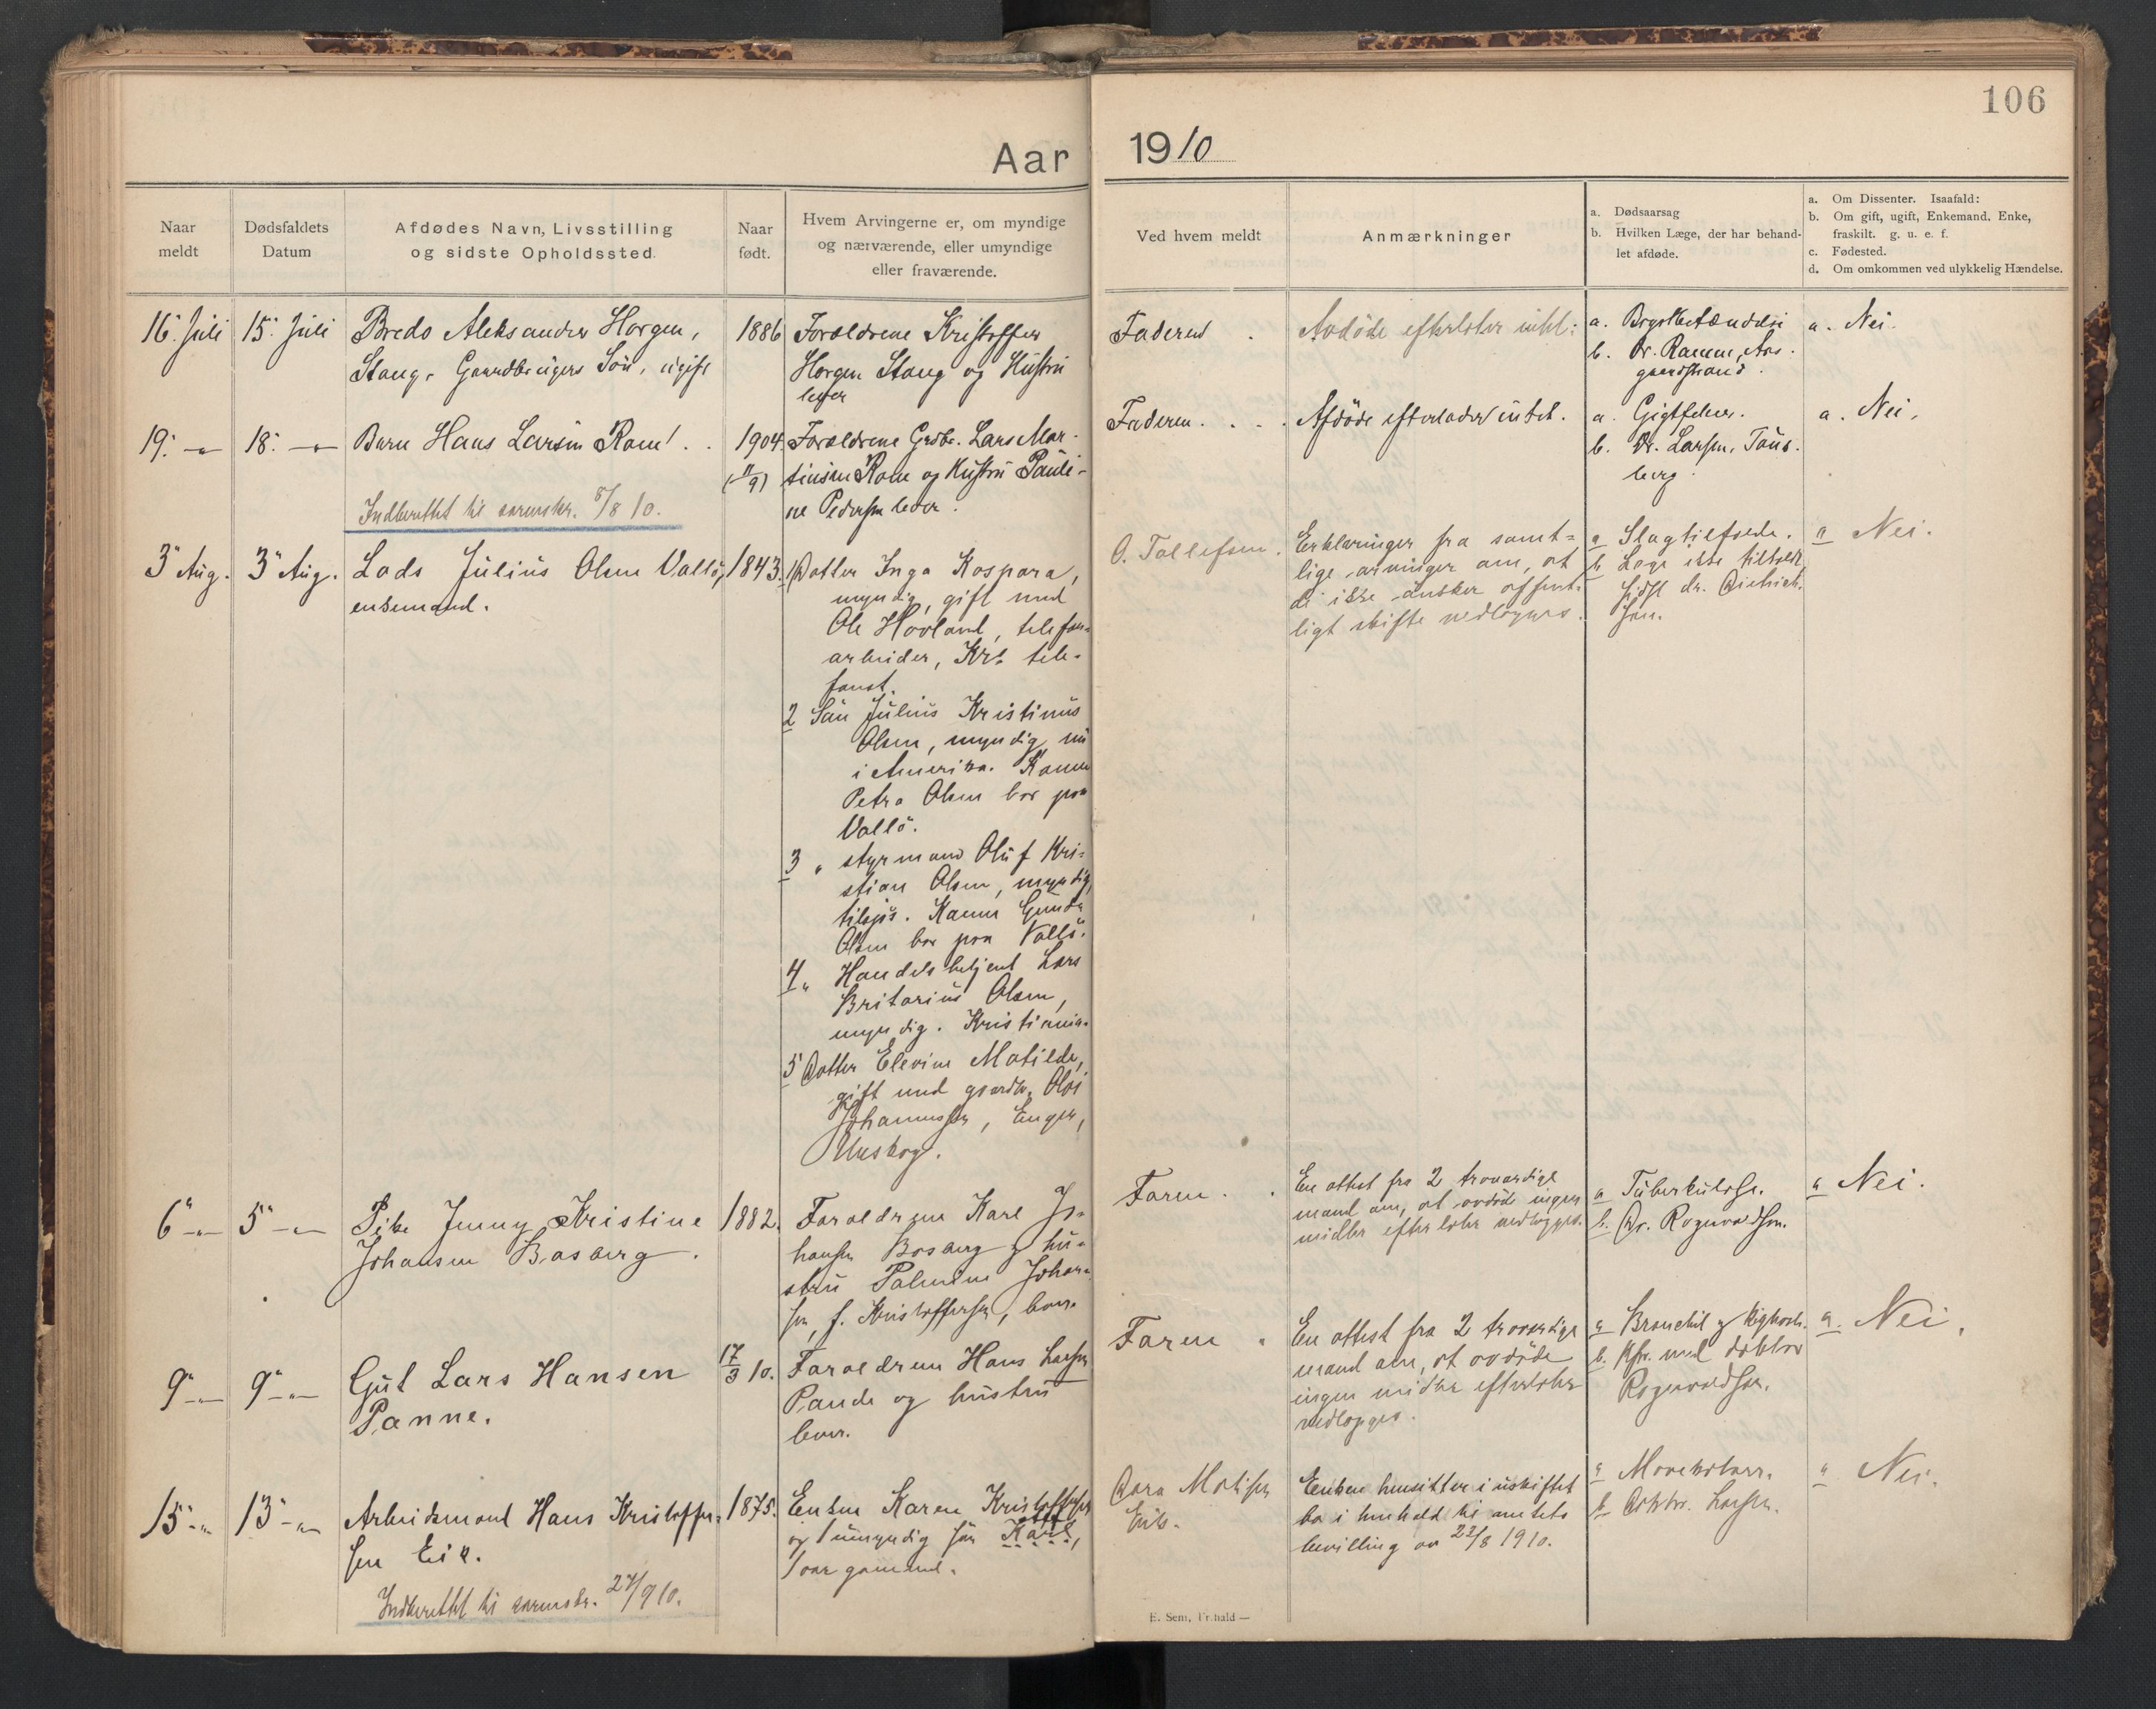 106
Aar 1910
Naar meldt
Dødsfaldets Datum
Afdødes Navn, Livsstilling og sidste Opholdssted.
Naar født.
Hvem Arvingerne er, om myndige og nærværende, eller umyndige eller fraværende.
Ved hvem meldt
Anmærkninger
a. Dødsaarsag
b. Hvilken Læge, der har behandlet afdøde.
a. Om Dissenter. Isaafald:
b. Om gift, ugift, Enkemand, Enke, fraskilt. g. u. e. f.
c. Fødested.
d. Om omkommen ved ulykkelig Hændelse.
16. Juli
15. Juli
Bredo Aleksander Horgen,
Stang, Gaardbrugers Søn, ugift
1886
Forældrene Kristoffer
Horgen Stang og Hustru
lever
Faderen
Avdöde efterlater intet.
a. Brystbetændelse
b. Dr. Ramm, Aas-
gaardstrand.
a. Nei.
19. — " —
18. — " —
Barn Hans Larsen Rom
1904
(11/9)
Forældrene Grdbr. Lars Mar-
tinsen Rom og Hustru Pauli-
ne Pedersen lever.
Faderen
Afdöde efterlader intet.
a. Gigtfeber.
b. Dr. Larsen, Töns-
berg.
a. Nei.
Indberettet til sorenskr. 5/8 10.
3" Aug.
3" Aug.
Lods Julius Olsen Vallö,
enkemand.
1843
1 Datter Inga Kaspara,
myndig, gift med
Ole Hovland, telefon-
arbeider, Kra tele-
fonst.
2 Sön Julius Kristinus
Olsen, myndig, nu
i Amerika. Konen
Petra Olsen bor paa
Vallö.
3 " styrmand Oluf Kri-
stian Olsen, myndig,
tilsjös. Konen Gunda
Olsen bor paa Vallö.
4 " Handelsbetjent Lars
Britarius Olsen,
myndig. Kristiania.
5 Datter Elevine Matilde,
gift med gaardbr. Olai
Johannessen, Enger,
O. Tollefsen.
Erklæringer fra samt-
lige arvinger om, at
de ikke önsker offent-
ligt skifte vedlægges.
a Slagtilfælde.
b Læge ikke tilkaldt,
sidst dr. Didrich-
sen.
a Nei.
6" — " —
5" — " —
Pike Jenny Kristine
Johansen Basberg.
1882.
Forældrene Karl Jo-
hansen Basberg og hu-
stru Palmine Johan-
sen, f. Kristoffersen, lever.
Faren.
En attest fra 2 troværdige
mænd om, at avdöde ingen
midler efterlater vedlægges.
a Tuberkulose.
b. Dr. Rogenvaldsen.
a Nei.
9" — " —
9" — " —
Gut Lars Hansen
Panne.
17/3 10.
Forældrene Hans Larsen
Pande og hustru
lever.
Faren
En attest fra 2 troværdige
mænd om, at avdöde
ingen midler efterlater
vedlægges.
a Bronchit og kighoste.
b. Kfr. med doktor
Rogenvaldsen.
a. Nei.
15" — " —
13" — " —
Arbeidsmand Hans Kristoffer-
sen Eik.
1875.
Enken Karen Kristoffersen
og 1 umyndig sön Karl,
1 aar gammel.
Mathisen
Eik.
Enken hensitter i uskiftet
bo i henhold til amtets
bevilling av 22/8 1910.
a Mavekatarr.
b Doktor Larsen.
a Nei.
Indberettet til sorenskr. 27/9 10.
E. Sem, Fr.hald —